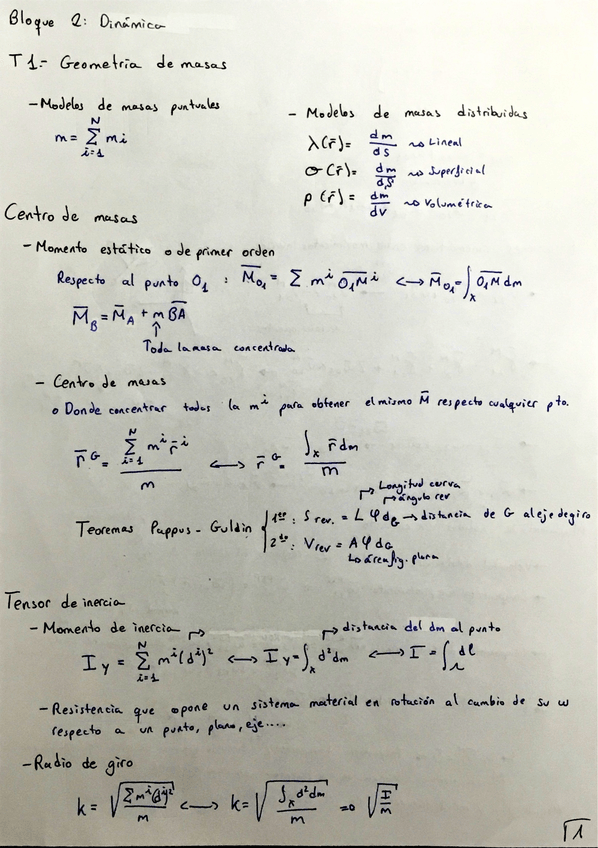 Bloque 2: Dinámica
T1.- Geometría de masas
- Modelos de masas puntuales
m = \sum_{i=1}^{N} m i
- Modelos de masas distribuidas
λ(r̄) = dm/ds ⇝ Lineal
σ(r̄) = dm/dS ⇝ Superficial
ρ(r̄) = dm/dv ⇝ Volumétrica
Centro de masas
- Momento estático o de primer orden
Respecto al punto O₁ : M̄_{O₁} = Σ mⁱ \overline{O₁M}ⁱ ⟷ M̄_{O₁} = ∫_x \overline{O₁M} dm
M̄_B = M̄_A + m \overline{BA}
↑
Toda la masa concentrada
- Centro de masas
o Donde concentrar todas la mⁱ para obtener el mismo M̄ respecto cualquier pto.
r̄^G = \frac{\sum_{i=1}^{N} mⁱ r̄ⁱ}{m} ⟷ r̄^G = \frac{∫_x r̄ dm}{m}
Longitud curva
ángulo rev
Teoremas Pappus-Guldin { 1^{er}: S rev. = L φ d_G → distancia de G al eje de giro
2^{do}: V rev = A φ d_G
↳ área fig. plana
Tensor de inercia
- Momento de inercia
distancia del dm al punto
I y = \sum_{i=1}^{N} mⁱ(dⁱ)² ⟷ I y = ∫_x d² dm ⟷ I = ∫_L dl
- Resistencia que opone un sistema material en rotación al cambio de su ω
respecto a un punto, plano, eje....
- Radio de giro
k = \sqrt{\frac{Σ mⁱ(dⁱ)²}{m}} ⟷ k = \sqrt{\frac{∫_x d² dm}{m}} ⇒ \sqrt{\frac{I}{m}}
1